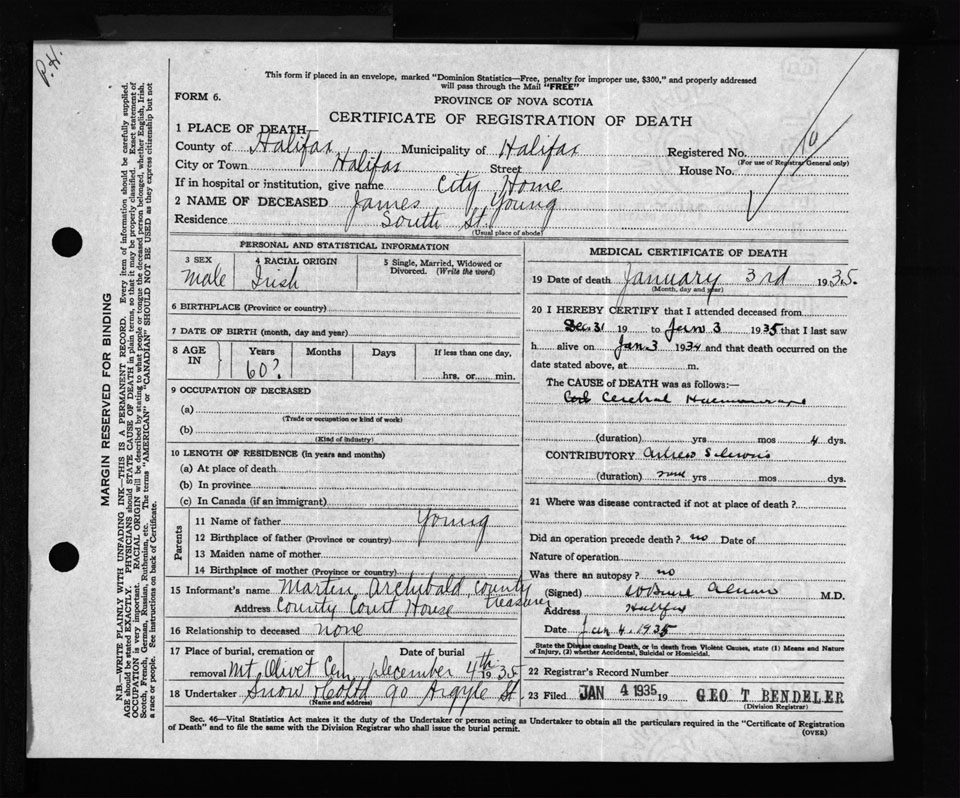 P.H.
This form if placed in an envelope, marked "Dominion Statistics—Free, penalty for improper use, $300," and properly addressed
will pass through the Mail "FREE"
FORM 6.
PROVINCE OF NOVA SCOTIA
CERTIFICATE OF REGISTRATION OF DEATH
1 PLACE OF DEATH—
County of Halifax Municipality of Halifax Registered No.
(For use of Registrar General only)
City or Town Halifax Street House No.
If in hospital or institution, give name City Home
2 NAME OF DECEASED James Young
Residence South St.
(Usual place of abode)
PERSONAL AND STATISTICAL INFORMATION
3 SEX
male
4 RACIAL ORIGIN
Irish
5 Single, Married, Widowed or
Divorced. (Write the word)
6 BIRTHPLACE (Province or country)
7 DATE OF BIRTH (month, day and year)
8 AGE
IN
Years Months Days If less than one day,
60? hrs. or min.
9 OCCUPATION OF DECEASED
(a)
(Trade or occupation or kind of work)
(b)
(Kind of industry)
10 LENGTH OF RESIDENCE (in years and months)
(a) At place of death
(b) In province
(c) In Canada (if an immigrant)
Parents
11 Name of father Young
12 Birthplace of father (Province or country)
13 Maiden name of mother
14 Birthplace of mother (Province or country)
15 Informant's name Martin Archibald, County
treasurer
Address County Court House
16 Relationship to deceased none
17 Place of burial, cremation or Date of burial
removal Mt Olivet Cem December 4th 1935
18 Undertaker Snow & Co Ltd 90 Argyle St
(Name and address)
MEDICAL CERTIFICATE OF DEATH
19 Date of death January 3rd 1935.
(Month, day and year)
20 I HEREBY CERTIFY that I attended deceased from
Dec 31 19 to Jan 3 1935 that I last saw
h alive on Jan. 3 1934 and that death occurred on the
date stated above, at m.
The CAUSE of DEATH was as follows:—
Cerebral Haemorrhage
(duration) yrs mos 4 dys.
CONTRIBUTORY
(duration) yrs mos dys.
21 Where was disease contracted if not at place of death?
Did an operation precede death? no Date of
Nature of operation
Was there an autopsy? no
(Signed) M.D.
Address Halifax
Date Jan 4. 1935
State the Disease causing Death, or in death from Violent Causes, state (1) Means and Nature
of Injury, (2) whether Accidental, Suicidal or Homicidal.
22 Registrar's Record Number
23 Filed JAN 4 1935 19 GEO T BENDELER
(Division Registrar)
Sec. 46—Vital Statistics Act makes it the duty of the Undertaker or person acting as Undertaker to obtain all the particulars required in the "Certificate of Registration
of Death" and to file the same with the Division Registrar who shall issue the burial permit.
(OVER)
MARGIN RESERVED FOR BINDING
N.B.—WRITE PLAINLY WITH UNFADING INK—THIS IS A PERMANENT RECORD. Every item of information should be carefully supplied.
AGE should be stated EXACTLY. PHYSICIANS should STATE CAUSE OF DEATH in plain terms, so that it may be properly classified. Exact statement of
OCCUPATION is very important. RACIAL ORIGIN will be described by stating to what people or tongue the deceased person belonged, whether English, Irish,
Scotch, French, German, Russian, Ruthenian, etc. The terms "AMERICAN" or "CANADIAN" SHOULD NOT BE USED as they express citizenship but not
a race or people. See instructions on back of Certificate.